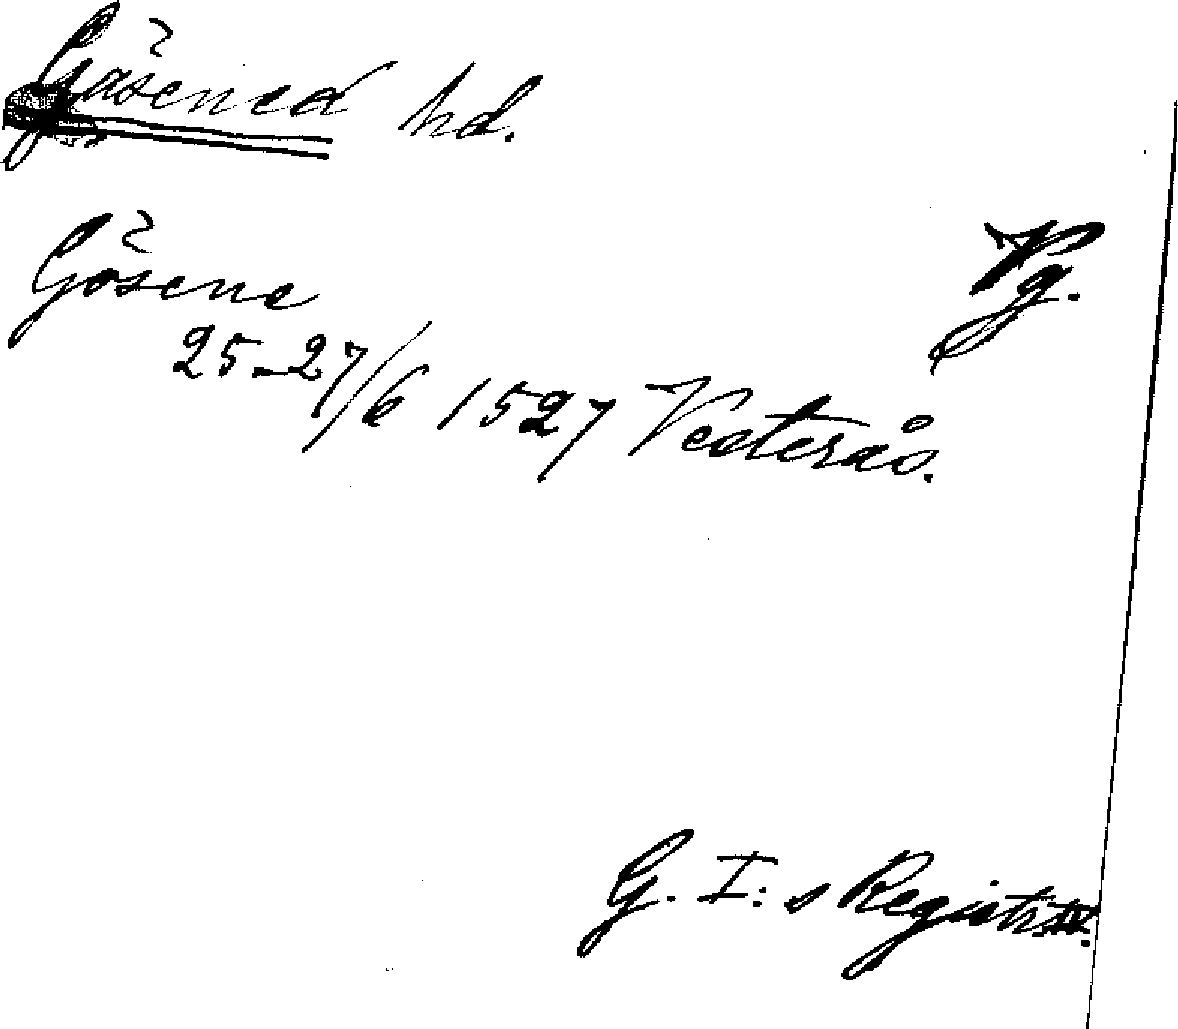 Gåsened hd.
Gåsene
Vg.
25-27/6 1527 Vesterås.
G. I:s Registr. IV.